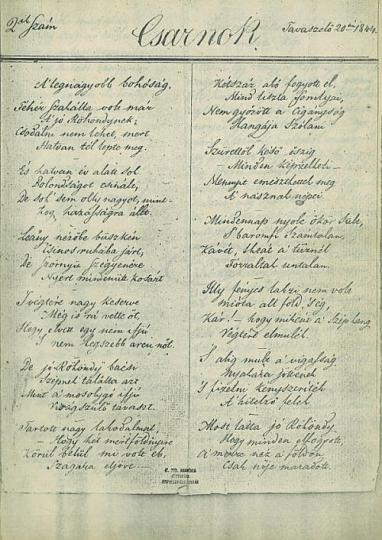 2ik Szám
Csarnok.
Tavaszelő 20án 1844.
A legnagyobb bohóság.
Fehér szakálla volt már
A jó Rohondynek;
Csodálni nem lehet, mert
Hatvan tél lepte meg.
És hatvan év alatt sok
Bolondságot csinált,
De sok sem olly nagyot, mint
házasságra állt.
Leány nézőbe büszkén
ruhába járt,
De szörnyü szégyenére
Nyert mindenütt kosárt
Végtére nagy keserve
Még is rá vett őt,
Hogy elvesz egy nem ifju
Nem legszebb arcu nőt.
De jó Rohondy bácsi
Szépnek találta azt
Mint a mosolygó ifju
Virágszülő tavaszt.
Tartott nagy lakodalmat,
Hogy két mértföldnyire
Körül belül mi volt eb,
Szagára eljöve —
Kétszáz akó fogyott el,
Mind tiszta
Nem győzött a cigányság
Hangája szólani
Szürettől késő őszig
Minden
Mennyit emészthetett meg
A násznak népei
Mindennap nyolc ökör sült,
S baromfi számtalan,
Kávét, theát a tüznél
Forraltak untalan.
Illy fényes lakzi nem volt
mióta áll föld, ég,
Kár! — hogy miként a szép láng
Végtére elmulék.
S alig mult a vigasság
Nyakára jöttenek
S fizetni kényszeríték
A hitelző felek
Most látta jó Rohondy
Hogy minden elfogyott,
A messze néz a földön
Csak nője maradott.